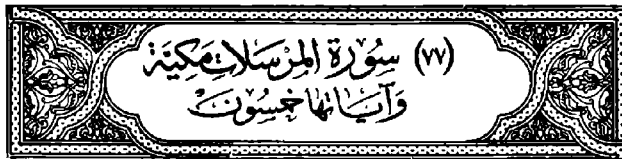 (٧٧) سُورَة المُرْسَلات مَكيَّة
وَآيَاتهَا خمسُونَ